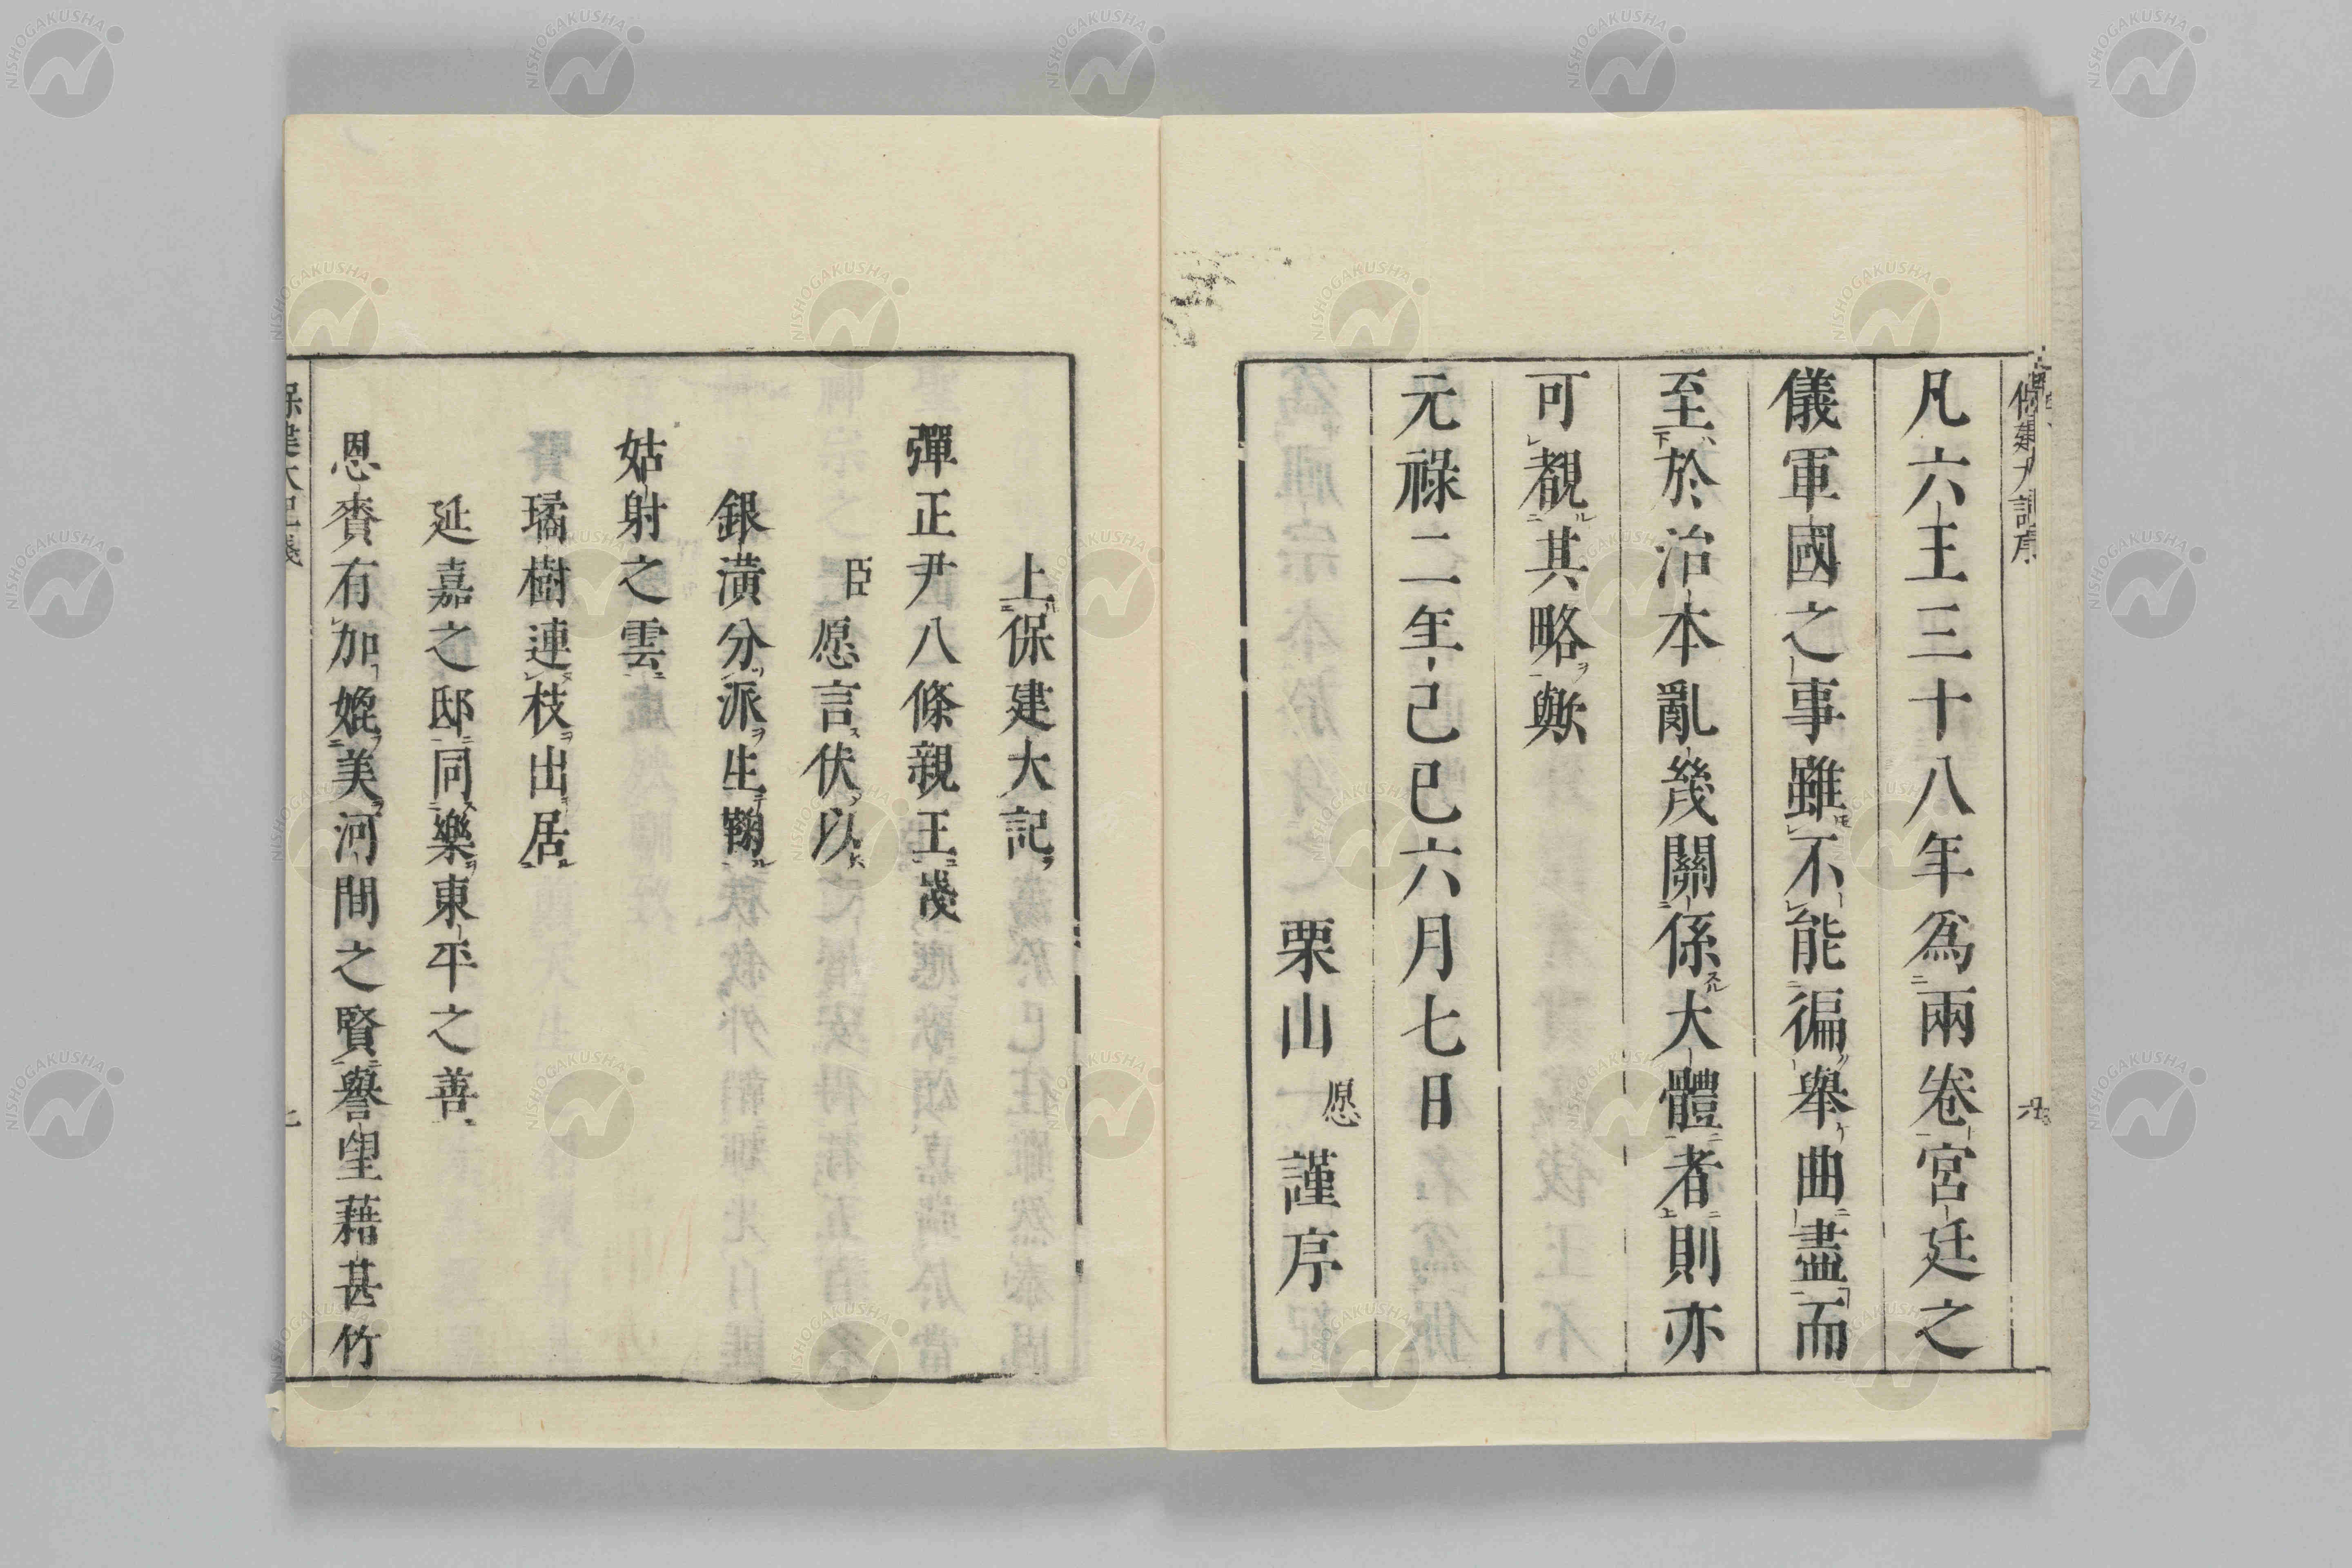 保建大記序
凡六王三十八年爲兩卷宮廷之
儀軍國之事雖不能徧舉曲盡而
至於治本亂幾關係大體者則亦
可觀其略歟
元祿二年己巳六月七日
栗山愿謹序
上保建大記
彈正尹八條親王牋
臣愿言伏以
銀潢分派生鞠
姑射之雲
璚樹連枝出居
延嘉之邸同樂東平之善
恩賚有加媲美河間之賢譽望藉甚竹
保建大記牋
NISHOGAKUSHA